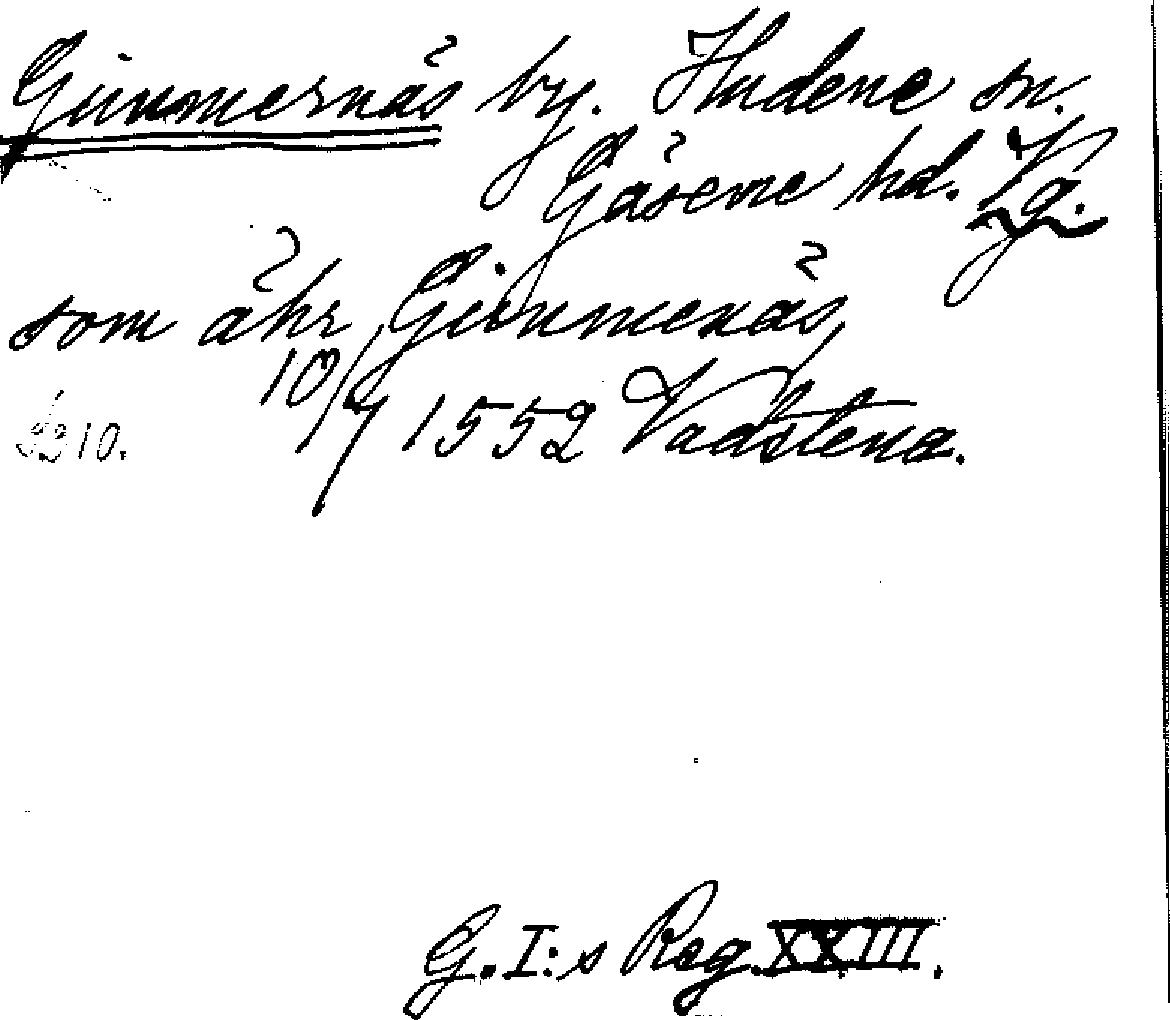 Gimmernäs by. Hudene sn.
Gäsene hd. Vg.
som ähr Gimmenäs,
10/7 1552 Vadstena.
s. 210.
G. I:s Reg. XXIII.